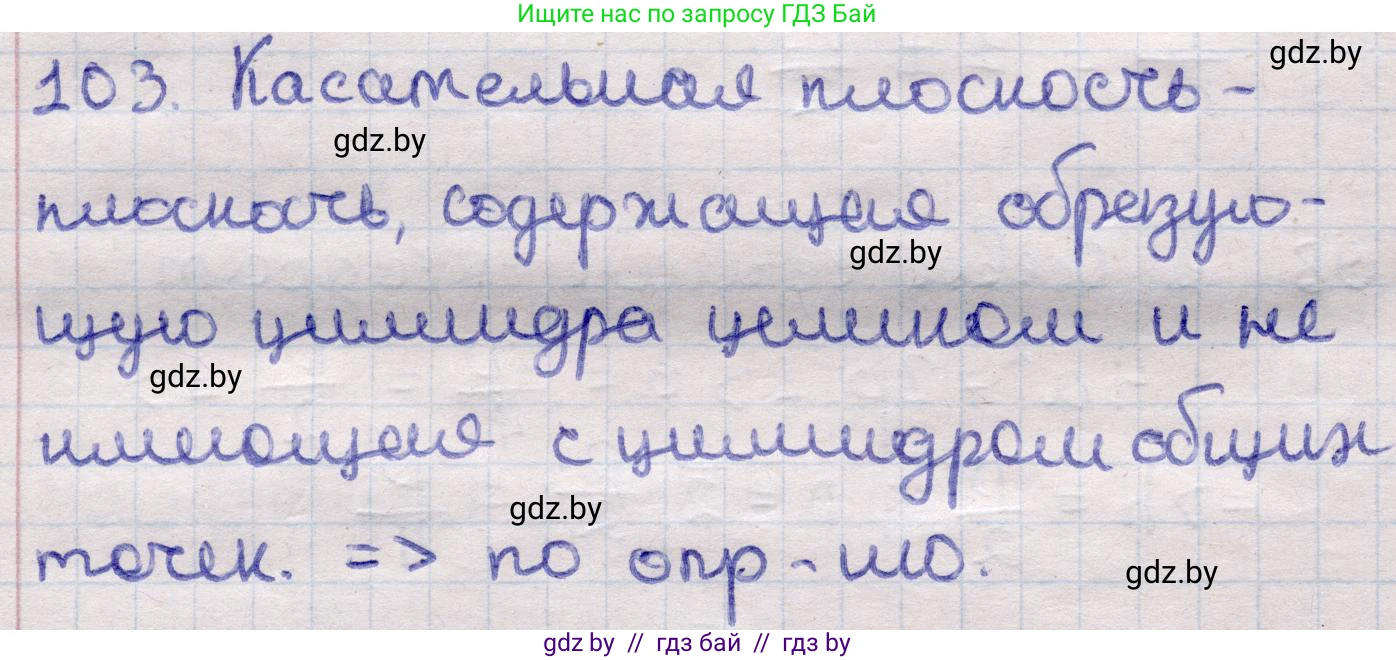 Ищите нас по запросу ГДЗ Бай
gdz.by
103. Касательная плоскость -
gdz.by
плоскость, содержащая образую-
gdz.by
щую цилиндра целиком и не
gdz.by
имеющая с цилиндром общих
gdz.by
точек. => по опр-ию.
gdz.by
gdz by // гдз бай // гдз by